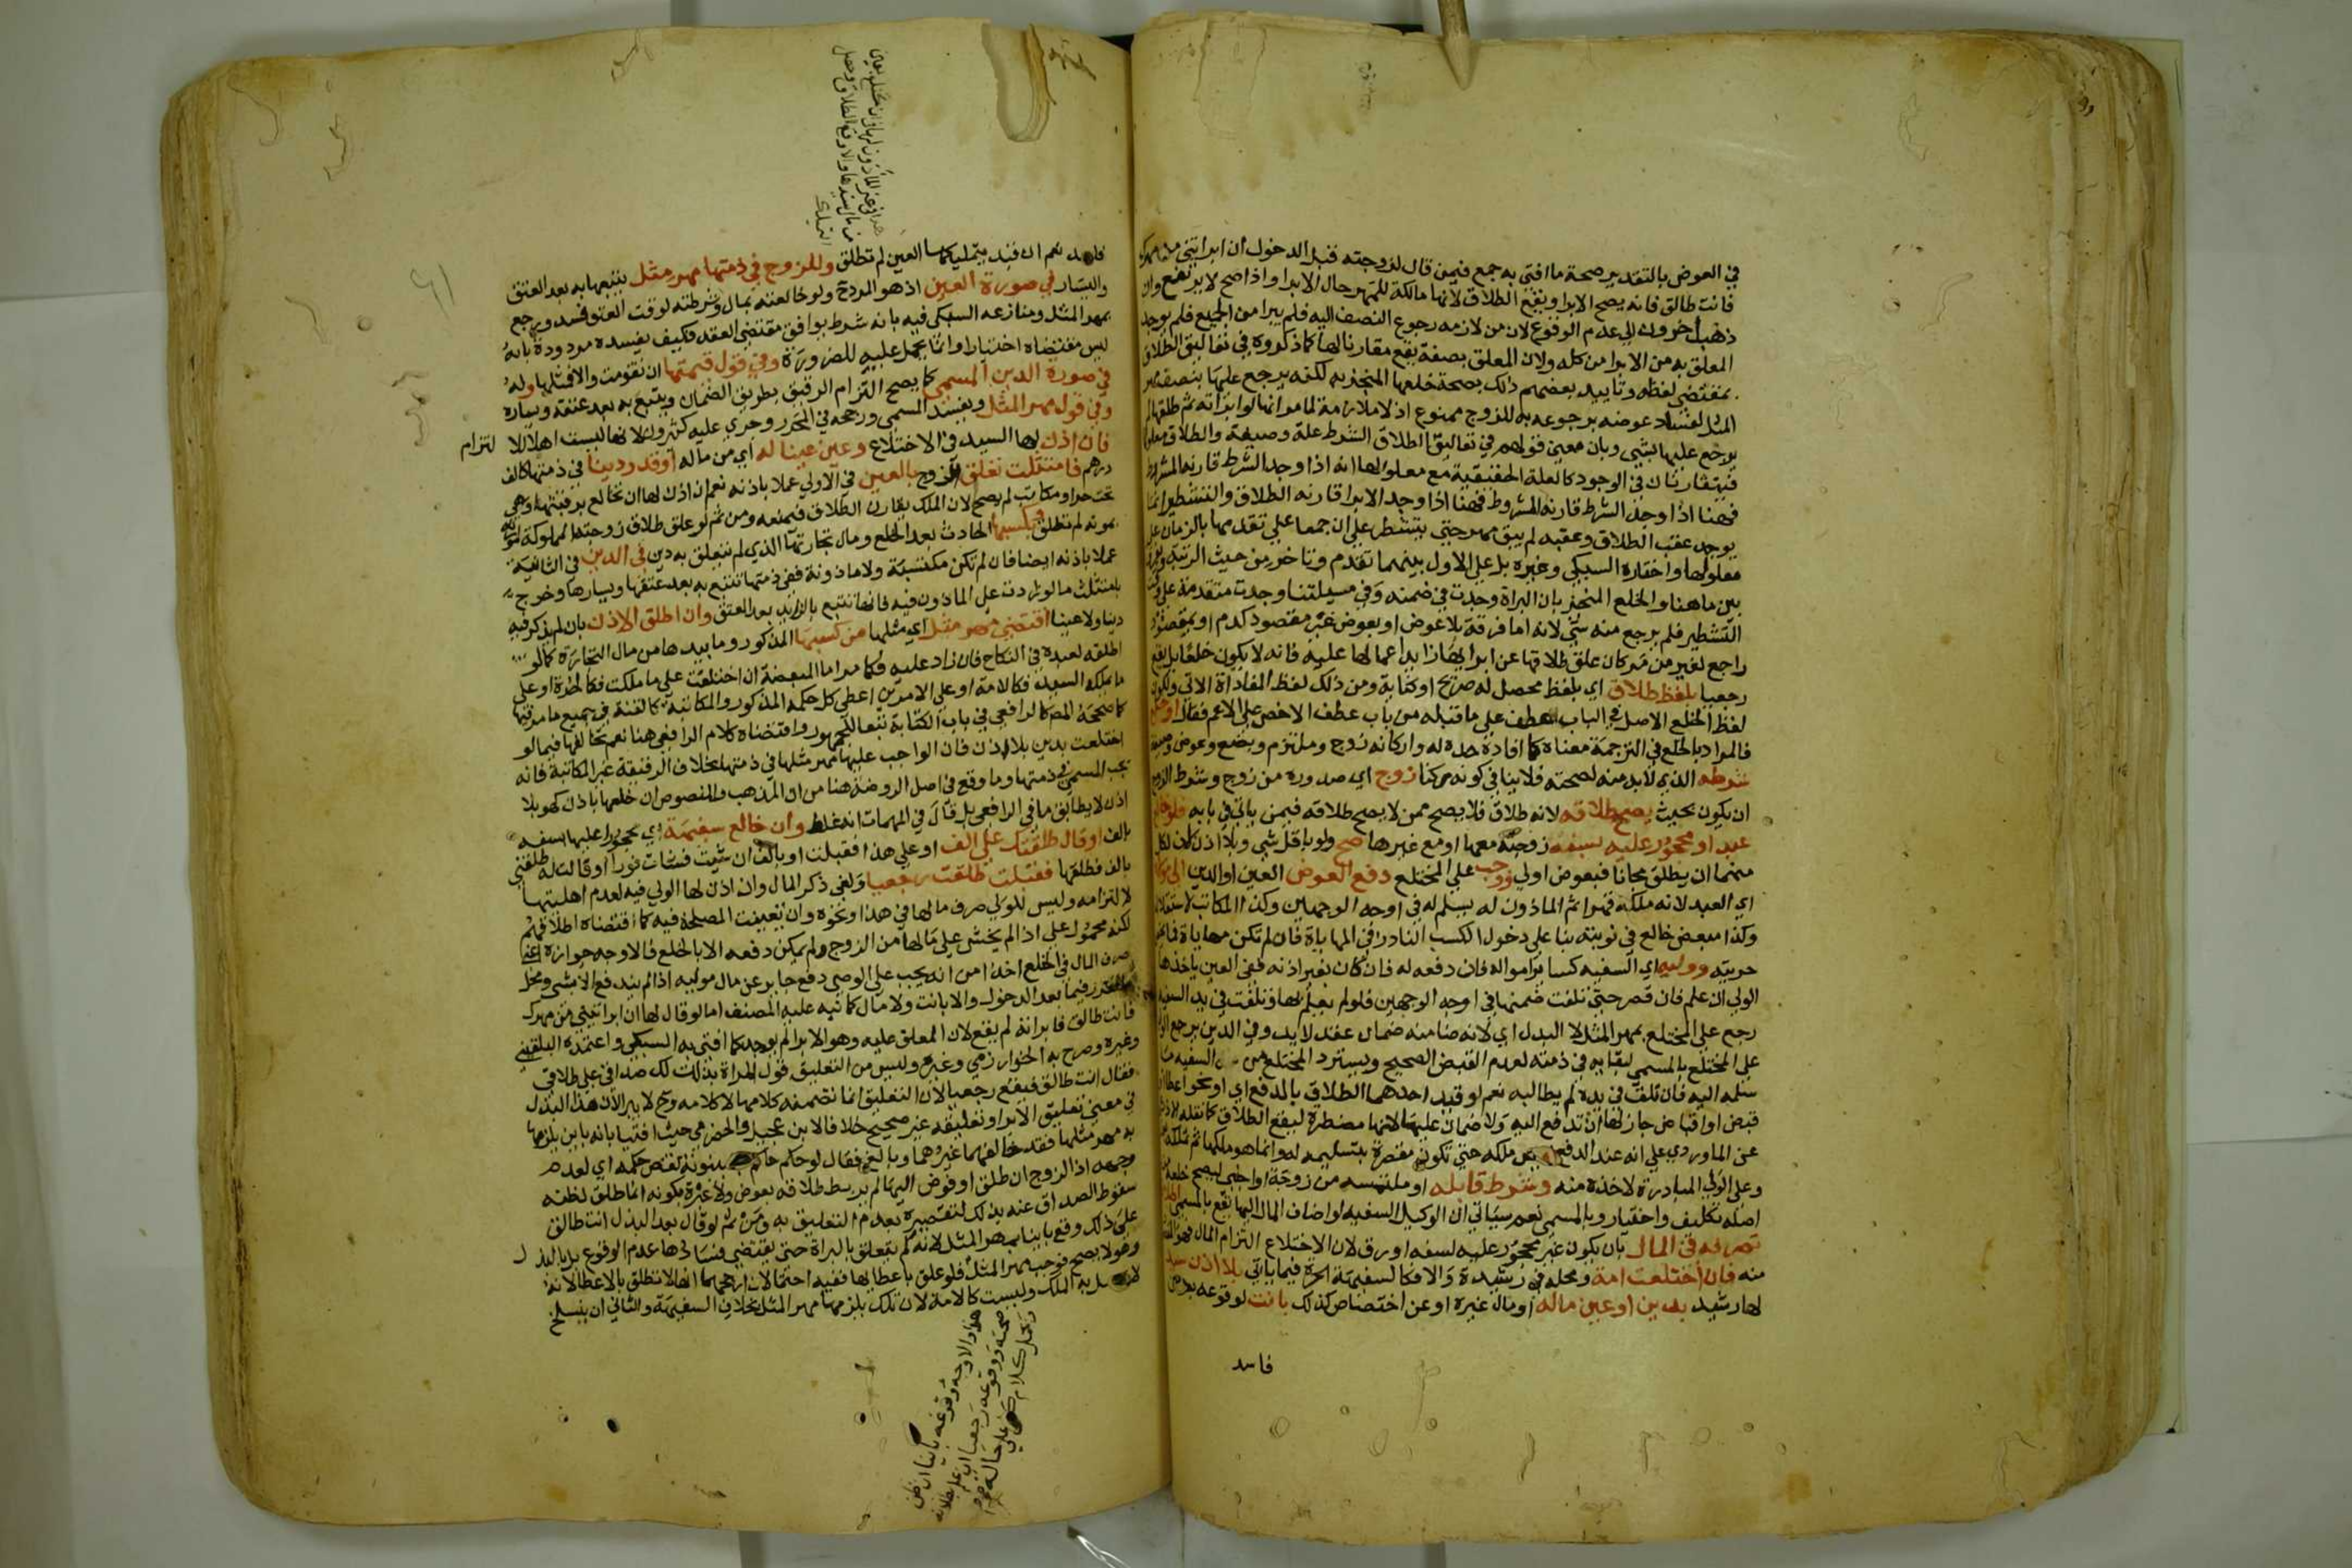 في العوض بالتقدير صحة ما افتى به جمع فيمن قال لزوجته قبل الدخول ان ابراتني من مهرك
فانت طالق فانه يصح الابرا ويقع الطلاق لانها مالكة للمهر حال الابرا واذا صح لا يرتفع وان
ذهب اخرون الى عدم الوقوع لان من لازمه رجوع النصف اليه فلم يبرا من الجميع فلم يوجد
المعلق به من الابرا من كله ولان المعلق بصفة يقع مقارنا لها كما ذكروه في تعاليق الطلاق
بمقتضى لفظه وتاييد بعضهم ذلك بصحة خلعها المنجز به لكنه يرجع عليها بنصف مهر
المثل لفساد عوضه برجوعه به للزوج ممنوع اذ لا ملازمة لما مر انها لو ابراته ثم طلقها لم
يرجع عليها بشي وبان معنى قولهم في تعاليق الطلاق الشرط علة وضعية والطلاق معلولها
فيتقارنان في الوجود كالعلة الحقيقية مع معلولها انه اذا وجد الشرط قارنه المشروط
فهنا اذا وجد الشرط قارنه المشروط فهنا اذا وجد الابرا قارنه الطلاق والتشطير انما
يوجد عقب الطلاق وعقبه لم يبق مهر حتى يتشطر على ان جمعا على تقدمها بالزمان على
معلولها واختاره السبكي وغيره بل على الاول بينهما تقدم وتاخر من حيث الرتبة
بين ما هنا والخلع المنجز بان البراة وجدت في ضمنه وفي مسيلتنا وجدت متقدمة على وقت
التشطير فلم يرجع منه شي لانه اما فرقة بلا عوض او بعوض غير مقصود كدم او بمقصود
راجع لغير من مر كان علق طلاقها عن ابرايها زايدا عما لها عليه فانه لا يكون خلعا بل يقع
رجعيا بلفظ طلاق اي بلفظ محصل له صريح او كناية ومن ذلك لفظ المفاداة الاتي ولكون
لفظ الخلع الاصل في الباب عطف على ما قبله من باب عطف الاخص على الاعم فقال او خلع
فالمراد بالخلع في الترجمة معناه كما افاده حده له واركانه زوج وملتزم وبضع وعوض وصيغة
شرطه الذي لابد منه لصحته فلا ينافي كونه ركنا زوج اي صدوره من زوج وشرط الزوج
ان يكون بحيث يصح طلاقه لانه طلاق فلا يصح ممن لا يصح طلاقه فيمن ياتي في بابه فلو خالع
عبد او محجور عليه بسفه زوجته معها او مع غيرها صح ولو باقل شي وبلا اذن لان لكل
منهما ان يطلق مجانا فبعوض اولى ووجب على المختلع دفع العوض العين او الدين الى مولاه
اي العبد لانه ملكه قهرا ثم الماذون له يسلم له في اوجه الوجهين وكذا المكاتب لاستقلاله
وكذا مبعض خالع في نوبته بنا على دخول الكسب النادر في المهاياة فان لم تكن مهاياة فما يخص
حريته ووليه اي السفيه كسايرامواله فان دفعه له فان كان بغير اذنه ففي العين ياخذها
الولي ان علم فان قصر حتى تلفت ضمنها في اوجه الوجهين فلو لم يعلم بها وتلفت في يد السفيه
رجع على المختلع بمهر المثل لا البدل اي لانه ضامنه ضمان عقد لا يد وفي الدين يرجع الولي
على المختلع بالمسمى لبقايه في ذمته لعدم القبض الصحيح ويسترد المختلع من السفيه ما
سلمه اليه فان تلف في يده لم يطالبه نعم لو قيد احدهما الطلاق بالدفع اي او نحو اعطا
قبض او اقباض جاز لها ان تدفع اليه ولا ضمان عليها لانها مضطرة ليقع الطلاق كما نقله الاذرعي
عن الماوردي على انه عند الدفع ملكه حتى تكون مقصرة بتسليمه له وانما هو ملكها ثم تملكه
وعلى الولي المبادرة لاخذه منه وشرط قابله او ملتمسه من زوجة او اجنبي ليصح خلعه
اصله تكليف واختيار وبالمسمى نعم سياتي ان الوكيل السفيه لو اضاف المال اليها يقع بالمسمى
تصرفه في المال بان يكون غير محجور عليه لسفه او رق لان الاختلاع التزام المال فهو
منه فان اختلعت امة ومحله في رشيدة والا فكالسفيهة الحرة فيما ياتي بلا اذن سيد
لها رشيد بدين او عين ماله او مال غيره او عن اختصاص كذلك بانت لوقوعه بعوض
فاسد
فاسد نعم ان قيد بتمليكها العين لم تطلق وللزوج في ذمتها مهر مثل يتبعها به بعد العتق
واليسار في صورة العين اذ هو المرد ح ولو خالعته بمال وشرطته لوقت العتق فسد ويرجع
بمهر المثل ومنازعه السبكي فيه بانه شرط يوافق مقتضى العقد فكيف يفسده مردودة بانه
ليس مقتضاه اختيارا وانما يحمل عليه للضرورة وفي قول قيمتها ان تقومت والا فمثلها وله
في صورة الدين المسمى كما يصح التزام الرقيق بطريق الضمان ويتبع به بعد عتقه ويساره
وفي قول مهر المثل ويفسد المسمى ورجحه في المحرر وجرى عليه كثيرون لانها ليست اهلا للالتزام
فان اذن لها السيد في الاختلاع وعين عينا له اي من ماله او قدر دينا في ذمتها كالف
درهم فامتثلت تعلق الزوج بالعين في الاولى عملا باذنه نعم ان اذن لها ان تخالع برقبتها وهي
تحت حر او مكاتب لم يصح لان الملك يقارن الطلاق فيمنعه ومن ثم لو علق طلاق زوجته المملوكة لابيه
بموته لم تطلق وبكسبها الحادث بعد الخلع ومال تجارتها الذي لم يتعلق به دين في الدين في الثانية
عملا باذنه ايضا فان لم تكن مكتسبة ولا ماذونة ففي ذمتها تتبع به بعد عتقها ويسارها وخرج
بامتثلت ما لو زادت على الماذون فيه فانها تتبع بالزايد بعد العتق وان اطلق الاذن بان لم يذكر فيه
دينا ولا عينا اقتضى مهر مثل اي مثلها من كسبها المذكور وما بيدها من مال التجارة كما لو
اطلقه لعبده في النكاح فان زاد عليه فكما مر اما المبعضة ان اختلعت على ما ملكت فكالحرة او على
ما يملكه السيد فكالامة او على الامرين اعطى كل حكمه المذكور والمكاتبة كالقنة في جميع ما مر فيها
كما صححه المص كالرافعي في باب الكتابة تبعا للجمهور واقتضاه كلام الرافعي هنا نعم تخالفها فيما لو
اختلعت بدين بلا اذن فان الواجب عليها مهر مثلها في ذمتها بخلاف الرقيقة غير المكاتبة فانه
يجب المسمى في ذمتها وما وقع في اصل الروضة هنا من ان المذهب والمنصوص ان خلعها باذن كهو بلا
اذن لا يطابق ما في الرافعي بل قال في المهمات انه غلط وان خالع سفيهة اي محجورا عليها بسفه
بالف او قال طلقتك على الف او على هذا فقبلت او بالف ان شيت فشات فورا او قالت له طلقني
بالف فطلقها فقبلت طلقت رجعيا ولغى ذكر المال وان اذن لها الولي فيه لعدم اهليتها
لالتزامه وليس للولي صرف مالها في هذا ونحوه وان تعينت المصلحة فيه كما اقتضاه اطلاقهم
لكنه محمول على اذا لم يخش على مالها من الزوج ولم يمكن دفعه الا بالخلع فالاوجه جوازه اعني
صرف المال في الخلع اخذا من انه يجب على الوصي دفع جاير عن مال موليه اذا لم يندفع الا بشي ومحل
فيما بعد الدخول والا بانت ولا مال كما نبه عليه المصنف اما لو قال لها ان ابراتيني من مهرك
فانت طالق فابراته لم يقع لان المعلق عليه وهو الابرا لم يوجد كما افتى به السبكي واعتمده البلقيني
وغيره وصرح به الخوارزمي وغيره وليس من التعليق قول المراة بذلت لك صداقي على طلاقي
فقال انت طالق فيقع رجعيا لان التعليق انما تضمنه كلامها لا كلامه وح لا يبرا لان هذا البذل
في معنى تعليق الابرا وتعليقه غير صحيح خلافا لابن عجيل والحضرمي حيث افتيا بانه باين يلزمها
به مهر مثلها فقد خالفهما غيرهما وبالغ فقال لو حكم حاكم ببينونة نقض حكمه اي لعدم
وجهه اذ الزوج ان طلق او فوض اليها لم يربط طلاقه بعوض ولا عبرة بكونه انما طلق لظنه
سقوط الصداق عنه بذلك لتقصيره بعدم التعليق به ومن ثم لو قال بعد البذل انت طالق
على ذلك وقع باينا بمهر المثل لانه لم يتعلق بالبراة حتى يقتضي فسادها عدم الوقوع بل بالبذل
وهو لا يصح فوجب مهر المثل فلو علق باعطايها ففيه احتمالان ارجحهما انها لا تطلق بالاعطا لانه
به الملك وليست كالامة لان تلك يلزمها مهر المثل بخلاف السفيهة والثاني ان ينسلخ